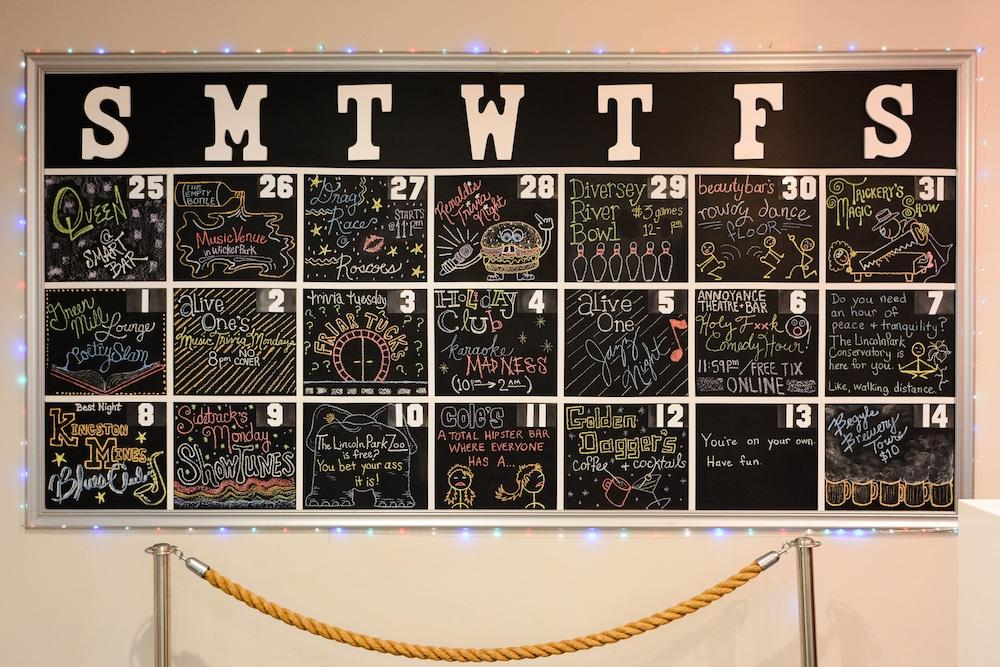 S M T W T F S
25
Queen
@
SMART
BAR
26
THE
EMPTY
BOTTLE
Music Venue
in Wicker Park
27
Drag
Race
@
STARTS
@ 11pm
Roscoes
28
Ronald's
Trivia
Night
29
Diversey
River
Bowl
$3 games
12-
pm
30
beautybar's
rowdy dance
FLOOR
31
TRICKERY'S
MAGIC SHOW
1
Green
Mill
Lounge
Poetry Slam
2
alive
One's
Music Trivia Mondays
8pm NO
COVER
3
trivia tuesday
@
FRIAR TUCKS
4
HOLiDAY
Club
karaoke
MADNESS
(10pm → 2AM)
5
alive
One
Jazz
Night
6
ANNOYANCE
THEATRE + BAR
Holy F*xk
Comedy Hour
11:59pm FREE TIX
ONLINE
7
Do you need
an hour of
peace + tranquility?
The Lincoln Park
Conservatory is
here for you.
Like, walking distance.
8
Best Night
KINGSTON
MINES
Blues Club
9
Sidetrack's
Monday
ShowTUNES
10
The Lincoln Park Zoo
is free?
You bet your ass
it is!
11
COLE'S
A TOTAL HIPSTER BAR
WHERE EVERYONE
HAS A...
12
Golden
Dagger's
COFFEE + COCKTAILS
13
You're on your own.
Have fun.
14
Begyle
Brewery
Tours
$10